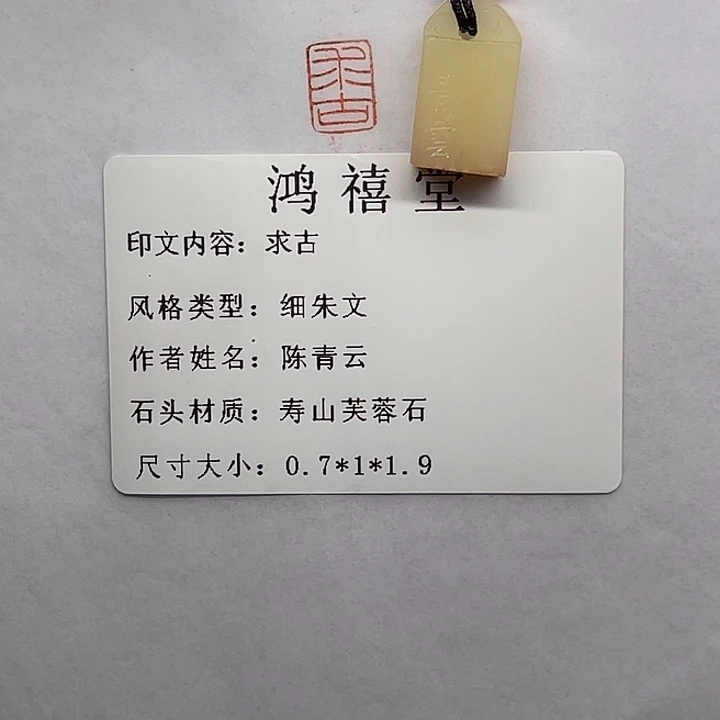 求古
鸿禧堂
印文内容：求古
风格类型：细朱文
作者姓名：陈青云
石头材质：寿山芙蓉石
尺寸大小：0.7*1*1.9